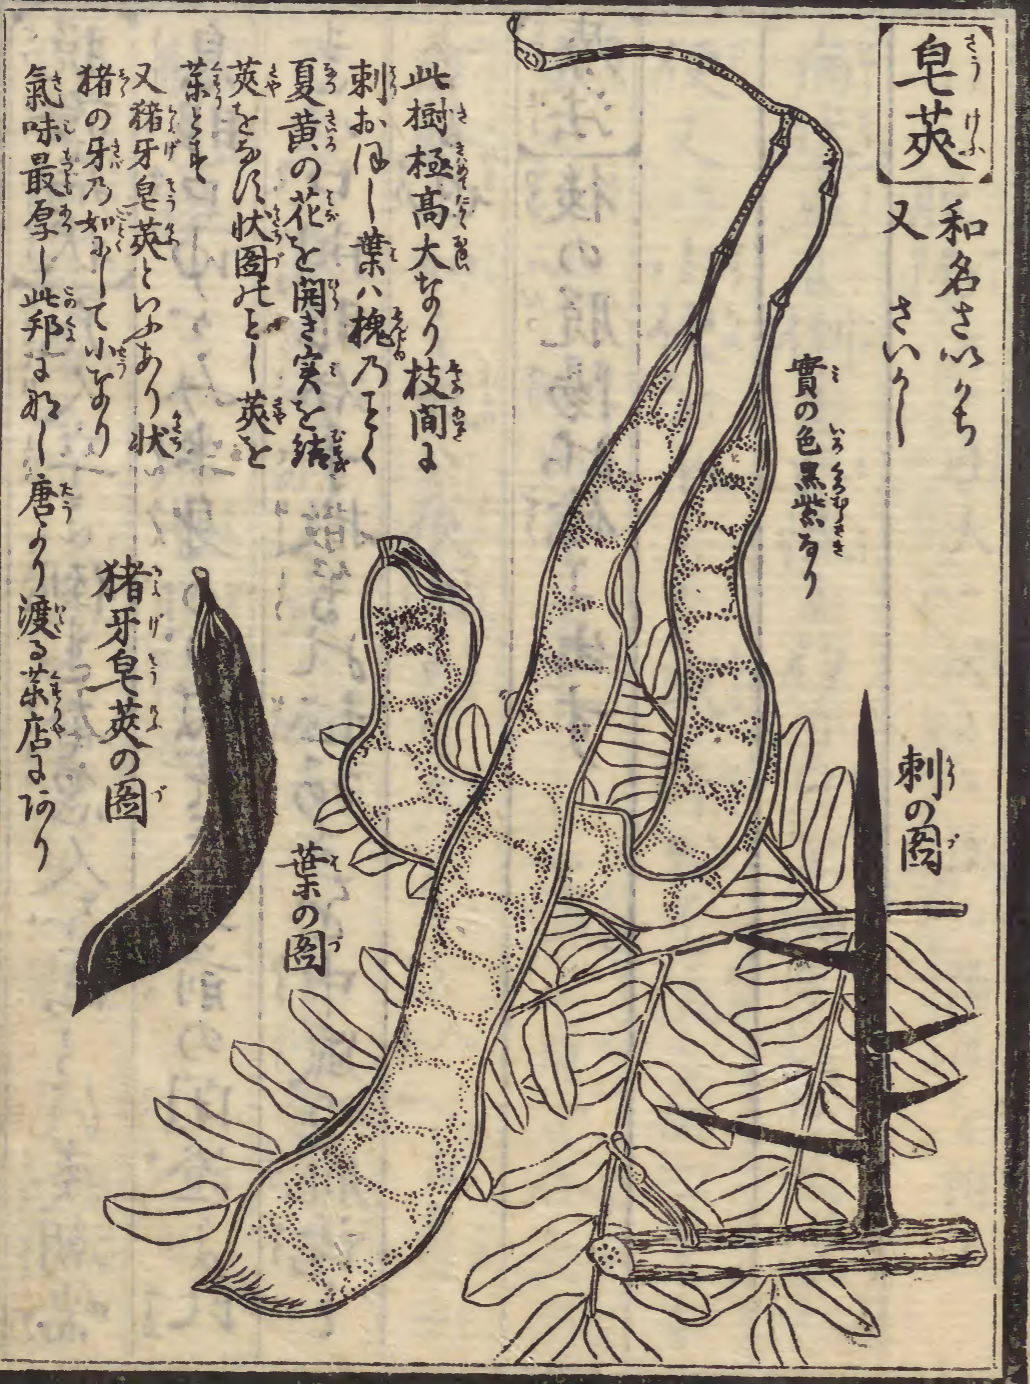 皂莢
さうけふ
和名さいかち
又 さいかし
實の色黒紫なり
み いろくろむらさき
刺の圖
此樹極高大なり枝間に
刺おほし葉ハ槐乃ごとく
夏黄の花を開き実を結
莢をなす状圖のごとし莢を
薬とす
又猪牙皂莢といふあり状
猪の牙乃如にして小なり
氣味最厚し此邦に那し唐より渡る薬店にあり
猪牙皂莢の圖
葉の圖